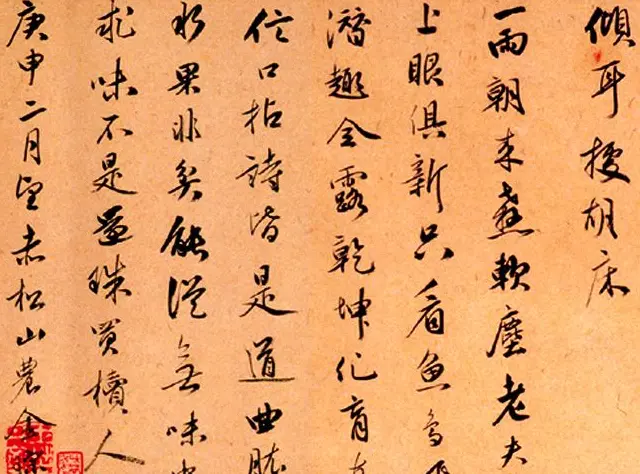 傾耳胡床
一雨朝来軟塵老夫
上眼俱新只看魚鳥
潛趣全露乾坤化育
信口拈詩皆是道曲肱
水果非矣能從無味
求味不是還珠買櫝人
庚申二月望赤松山農金琮